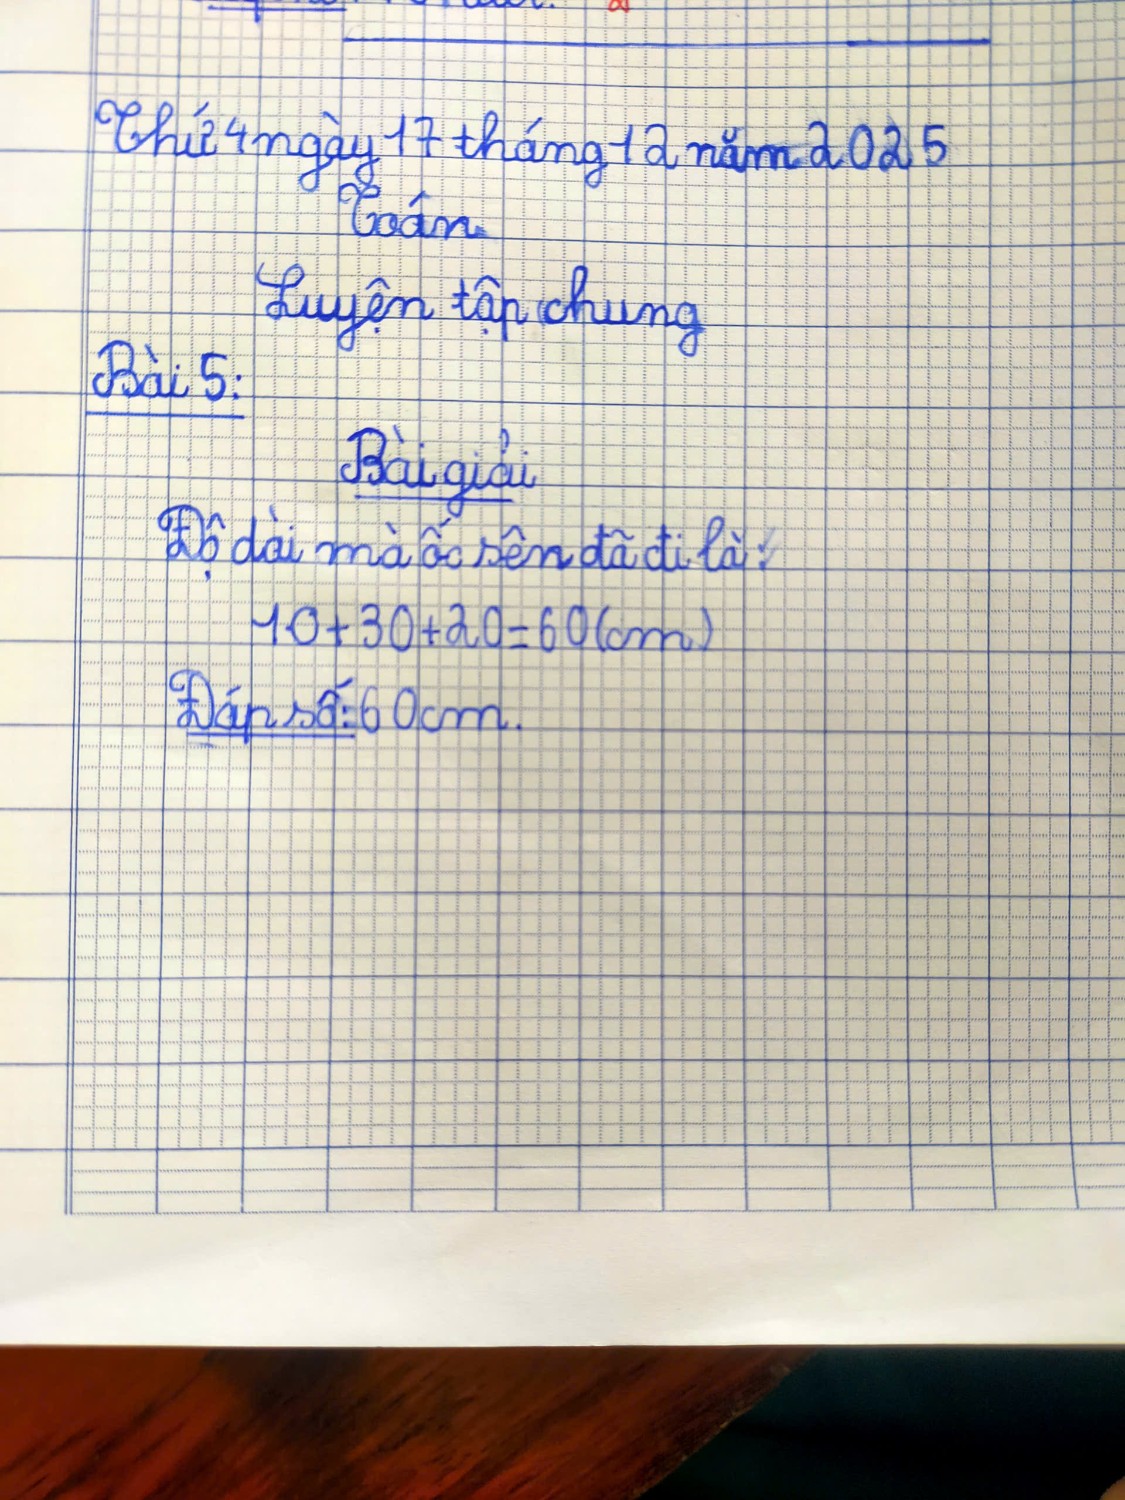 Thứ 4 ngày 17 tháng 12 năm 2025
Toán
Luyện tập chung
Bài 5:
Bài giải
Độ dài mà ốc sên đã đi là:
10+30+20=60(cm)
Đáp số: 60cm.